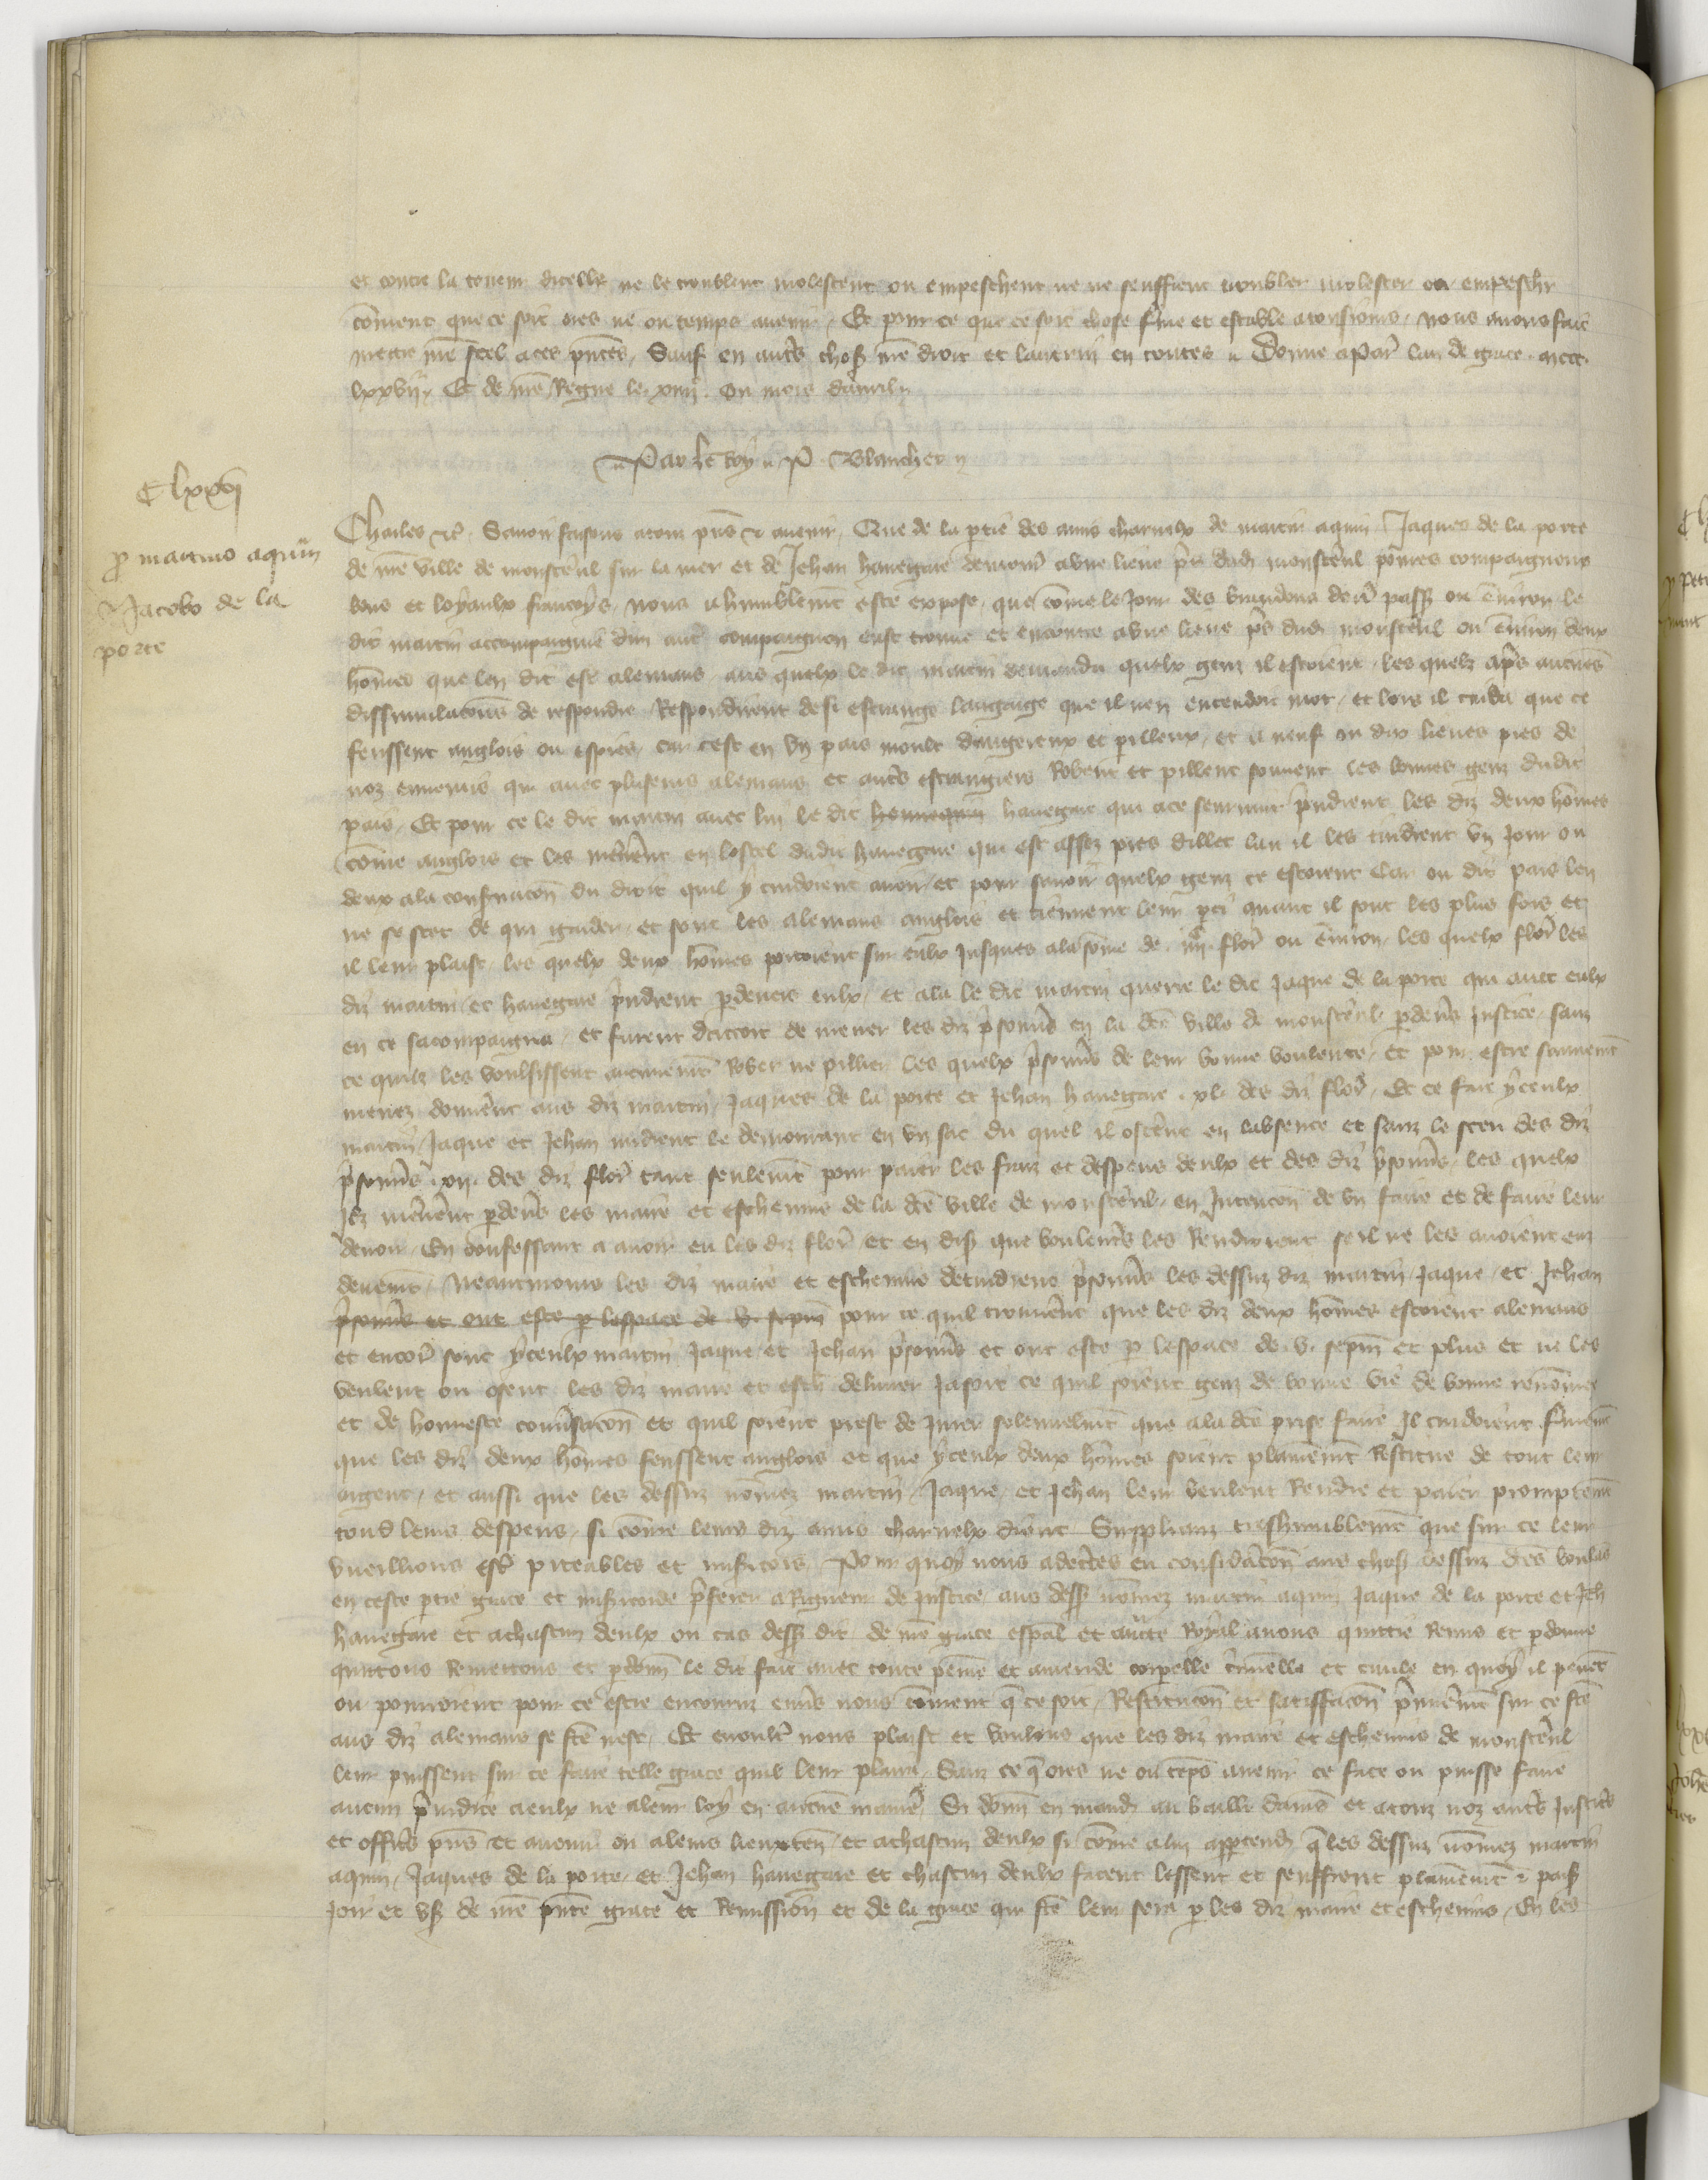 et contre la teneur dicelle ne le troublent molestent ou empeschent ne ne seuffrent troubler molester ou empeschr
coment que ce soit ores ne ou temps avenir. Et pour ce que ce soit chose ferme et estable a tousiours. nous avons fait
mettre nre seel a ces pntes. Sauf en autres choses nre droit et lautrui en toutes. Donne a Par lan de grace. mccc.
lxxvii. Et de nre Regne le xiiii. Ou mois davril
Par le Roy P. Blanchet
Clxxvi
p martino aquin
Jacobo de la
porte
Charles etc. Savoir faisons a touz pns et avenir. Que de la ptie des amis charnelx de martin aquin Jaques de la porte
de nre ville de monsteul sur la mer et de Jehan havegare demour a une lieue pres dud monsteul povres compaignons
bons et loyaulx francoys, nous a humblement este expose, que come le Jour des brandons derr passe ou environ le
dit martin accompaignie dun autre compaignon eust trouve et encontre a une lieue pres dud monsteul ou environ deux
homes que len dit est alemans, aus quelx le dit martin demanda quelx genz il estoient, les quelz apres aucunes
dissimulacions de respondre Respondirent de si estrange langaige que il nen entendoit mot, et lors il cuida que ce
feussent anglois ou espies, car cest en un pais moult dangereux et perilleux, et a neuf ou dix lieues pres de
noz ennemis qui avec pluseurs alemans et autres estrangiers Robent et pillent souvent les bonnes genz dudit
pais, Et pour ce le dit martin avec lui le dit hennequin havegare qui a ce seurvint prindrent les diz deux homes
come anglois et les menerent en lostel dudit havegare qui est assez pres dillec lau il les tindrent un Jour ou
deux a la conservacon du droit quil y cuidoient avoir, et pour savoir quelx genz ce estoient Car ou dit pais len
ne se scet de qui garder, et sont les alemans anglois et tiennent leur pti quant il sont les plus fors et
il leur plaist, les quelx deux homes portoient sur eulx Jusques a la some de flor ou environ, les quelx flor les
diz martin et havegare prindrent pdevers eulx, et ala le dit martin querre le dit Jaque de la porte qui avec eulx
en ce sacompaigna, et furent dacort de mener les diz prisonns en la dce ville de monsteul pdevers Justice, sanz
ce quilz les voulsissent aucunemt rober ne pillier, les quelx prisonns de leur bonne voulente, et pour estre seurement
menez donnerent aus diz martin, Jaques de la porte et Jehan havegare. xl. des diz flor, Et ce fait yceulx
martin, Jaque et Jehan mirent le demourant en un sac du quel il osterent en labsence et sanz le sceu des diz
prisonns xii des diz flor tant seulemt pour paier les fraiz et despens deulx et des diz prisonns, les quelx
Ilz menerent pdevers les maire et eschevins de la dce ville de monsteul, en Intencon de vr faire et de faire leur
devoir, En confessant a avoir eu les diz flor et en disant que voulentiers les Rendroient se il ne les avoient euz
deuemt, Neantmoins les diz maire et eschevins detindrent prisonns les dessuz diz martin, Jaque, et Jehan
prisonns et ont este p lespace de v sepm pour ce quil trouverent que les diz deux homes estoient alemans
et encor sont yceulx martin Jaque et Jehan prisonns et ont este p lespace de v. sepm et plus et ne les
veulent ou osent les diz maire et esch delivrer Jasoit ce quil soient genz de bonne vie de bonne renomee
et de honneste conversacon et quil soient prest de Jurer solennelmt que a la dce prise faire Il cuidoient fermemt
que les diz deux homes feussent anglois et que yceulx deux homes soient plainemt Restitue de tout leur
argent, et aussi que les dessuz nomez martin, Jaque, et Jehan leur veulent Rendre et paier promptemt
touz leurs despens, si come leurs diz amis charnelx dient Supplianz treshumblemt que sur ce leur
vueillions estre piteables et misericors. Pour quoy nous adcertes eu consideracon aus choses dessuz dces voulans
en ceste ptie grace et misericorde preferer a Rigueur de Justice, aus dess nomez martin aquin Jaque de la porte et Jeh
havegare et a chascun deulx ou cas dess dit de nre grace espal et aucte Royal avons quittie Remis et pdonne
quittons Remettons et pdonns le dit fait avec toute peine et amende corpelle criminelle et civile en quoy il peuent
ou pourroient pour ce estre encourruz envers nous coment q ce soit, Restitucon et satisffacon premieremt sur ce fte
aus diz alemans se fte nest, Et encoult nous plaist et voulons que les diz maire et eschevins de monsteul
leur puissent sur ce faire telle grace quil leur plaira, Sanz ce q ores ne ou teps avenir ce face ou puisse faire
aucun preiudice a eulx ne a leur loy en aucune maniere. Si donns en mand au bailli damis et a touz noz autres Justices
et officers pns et avenir ou a leurs lieuxten, et a chascun deulx si come a lui apptendra q les dessuz nomez martin
aquin, Jaques de la porte, et Jehan havegare et chascun deulx facent lessent et seuffrent plainemt et paiss
Joir et user de nre pnte grace et Remission et de la grace qui fte leur sera p les diz maire et eschevins, En les